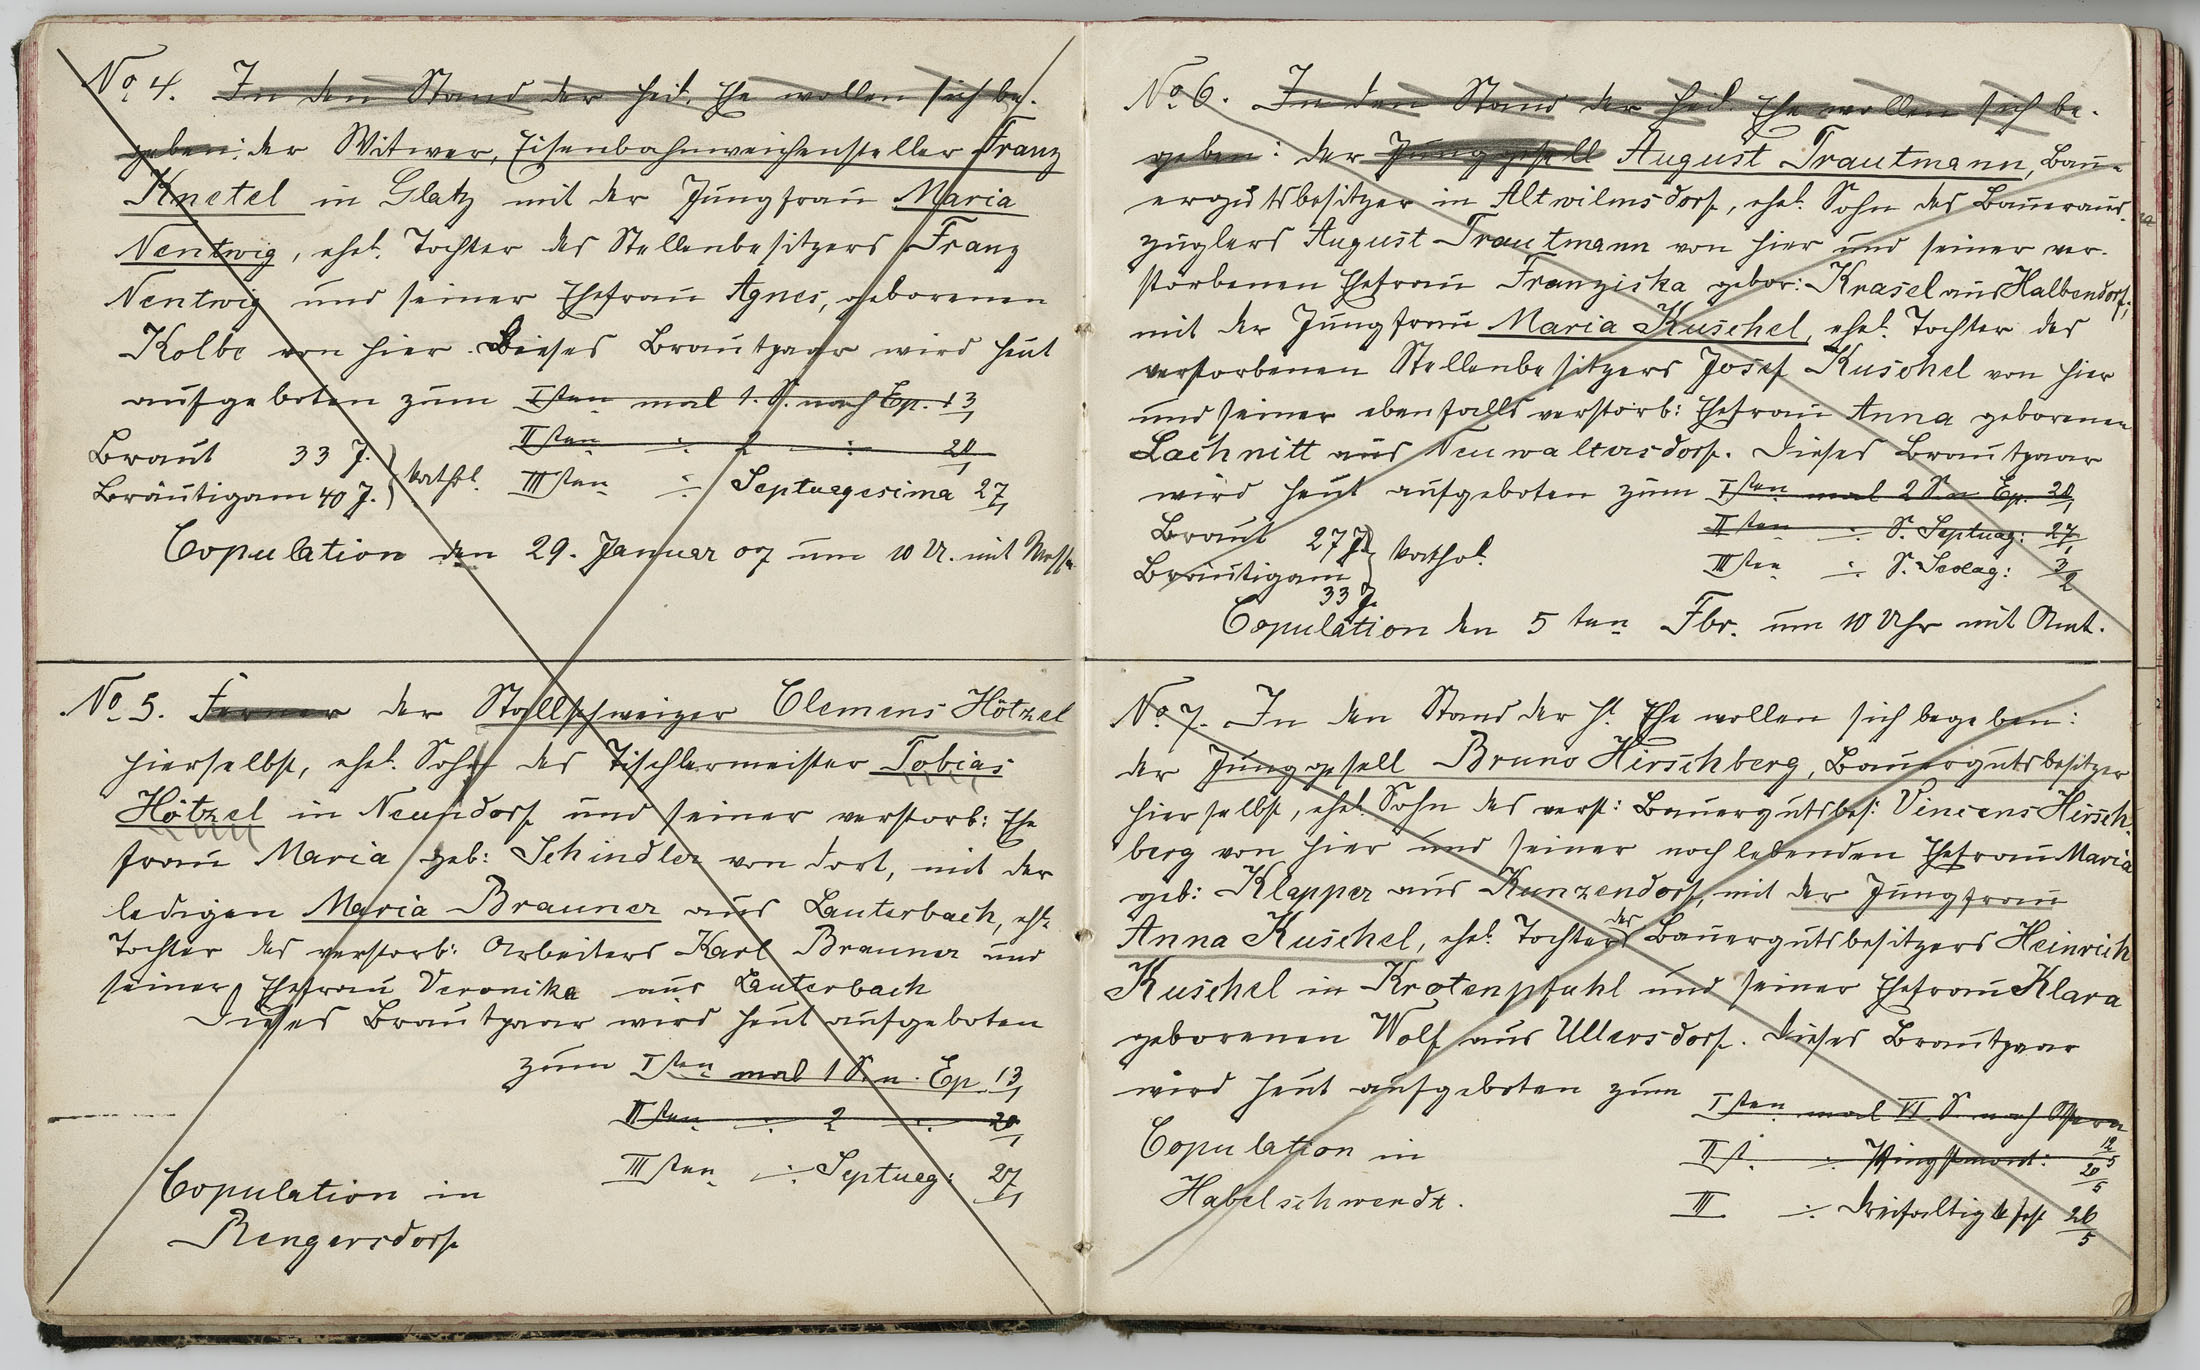 No. 4. In den Stand der heil. Ehe wollen sich be-
geben: der Witwer, Eisenbahnweichensteller Franz
Knetel in Glatz mit der Jungfrau Maria
Nentwig, ehel. Tochter des Stellenbesitzers Franz
Nentwig und seiner Ehefrau Agnes, geborenen
Kolbe von hier. Dieses Brautpaar wird heut
aufgeboten zum Isten mal 1. S. nach Ep. 13/1
IIten ÷ 2 ÷ 20/1
Braut 33 J. } kathol.
Bräutigam 40 J.
IIIten ÷ Septuagesima 27/1
Copulation den 29. Januar 07 um 10 U. mit Messe
No. 5. Ferner der Stallschweizer Clemens Hötzel
hierselbst, ehel. Sohn des Tischlermeister Tobias
Hötzel in Neundorf und seiner verstorb: Ehe
frau Maria geb: Schindler von dort, mit der
ledigen Maria Brauner aus Lauterbach, ehl.
Tochter des verstorb: Arbeiters Karl Brauner und
seiner Ehefrau Veronika aus Lauterbach
Dieses Brautpaar wird heut aufgeboten
zum Isten mal 1 S. n. Ep 13/1
IIten ÷ 2 ÷ 20/1
IIIten ÷ Septuag: 27/1
Copulation in
Rengersdorf
No. 6. In den Stand der heil. Ehe wollen sich be-
geben: der Junggesell August Trautmann, Bau-
ergutsbesitzer in Altwilmsdorf, ehel. Sohn des Baueraus-
züglers August Trautmann von hier und seiner ver-
storbenen Ehefrau Franziska gebor: Krasel aus Halbendorf,
mit der Jungfrau Maria Kuschel, ehel. Tochter des
verstorbenen Stellenbesitzers Josef Kuschel von hier
und seiner ebenfalls verstorb: Ehefrau Anna geborenen
Lachnitt aus Neuwaltersdorf. Dieses Brautpaar
wird heut aufgeboten zum Isten mal 2 S. n Ep. 20/1
IIten ÷ S. Septuag: 27/1
Braut 27 J. } kathol.
Bräutigam
33 J.
IIIten ÷ S. Sexag: 3/2
Copulation den 5ten Fbr. um 10 Uhr mit Amt.
No. 7. In den Stand der hl. Ehe wollen sich begeben:
der Junggesell Bruno Hirschberg, Bauergutsbesitzer
hierselbst, ehel. Sohn des verst: Bauergutsbes: Vincens Hirsch-
berg von hier und seiner noch lebenden Ehefrau Maria
geb: Klapper aus Kunzendorf, mit der Jungfrau
Anna Kuschel, ehel. Tochter des Bauergutsbesitzers Heinrich
Kuschel in Krotenpfuhl und seiner Ehefrau Klara
geborenen Wolf aus Ullersdorf. Dieses Brautpaar
wird heut aufgeboten zum Isten mal VI. S. nach Ostern 12/5
Copulation in
Habelschwerdt.
IIt. ÷ Pfingstmont: 20/5
III ÷ Dreifaltigkfest 26/5